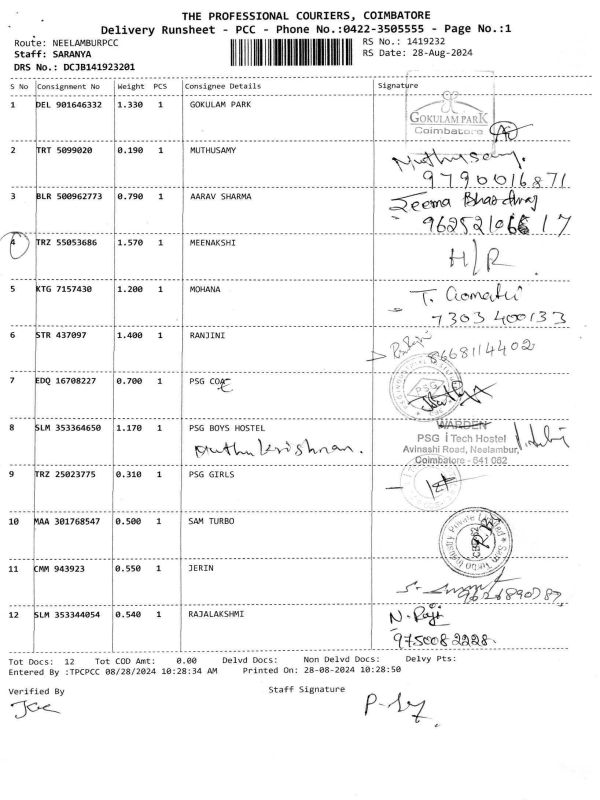 THE PROFESSIONAL COURIERS, COIMBATORE
Delivery Runsheet - PCC - Phone No.:0422-3505555 - Page No.:1
Route: NEELAMBURPCC RS No.: 1419232
Staff: SARANYA RS Date: 28-Aug-2024
DRS No.: DCJB141923201
S No Consignment No Weight PCS Consignee Details Signature
1 DEL 901646332 1.330 1 GOKULAM PARK
GOKULAM PARK
Coimbatore
2 TRT 5099020 0.190 1 MUTHUSAMY Muthusamy.
9790016871
3 BLR 500962773 0.790 1 AARAV SHARMA Seema Bhardwaj
4 TRZ 55053686 1.570 1 MEENAKSHI H/R
5 KTG 7157430 1.200 1 MOHANA T. Gomathi
7303400133
6 STR 437097 1.400 1 RANJINI
8668114402
7 EDQ 16708227 0.700 1 PSG COE
PSG
8 SLM 353364650 1.170 1 PSG BOYS HOSTEL WARDEN
Muthukrishnan. PSG i Tech Hostel
Avinashi Road, Neelambur,
Coimbatore - 641 062
9 TRZ 25023775 0.310 1 PSG GIRLS
10 MAA 301768547 0.500 1 SAM TURBO
Sam Turbo Industry Private Limited
11 CMM 943923 0.550 1 JERIN
12 SLM 353344054 0.540 1 RAJALAKSHMI N. Raji
9750082228
Tot Docs: 12 Tot COD Amt: 0.00 Delvd Docs: Non Delvd Docs: Delvy Pts:
Entered By :TPCPCC 08/28/2024 10:28:34 AM Printed On: 28-08-2024 10:28:50
Verified By Staff Signature